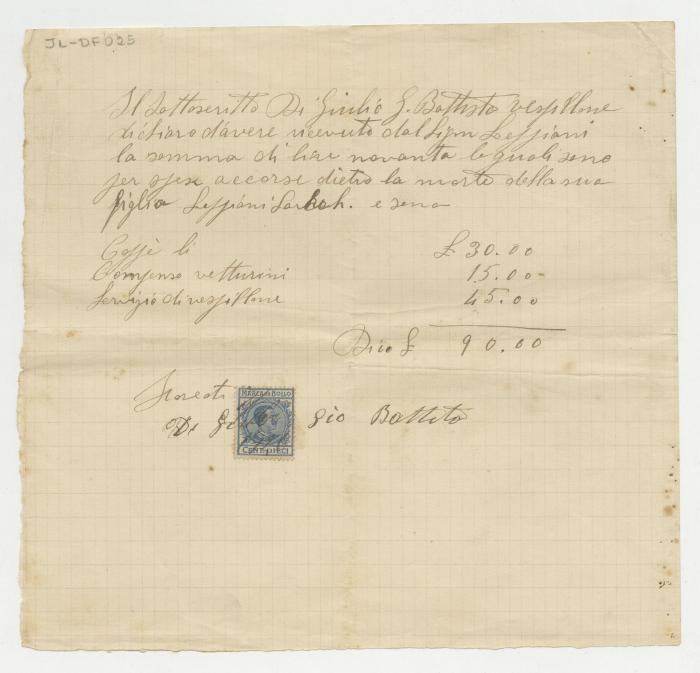 JL-DF025
Il Sottoscritto Di Giulio G. Battista vespillone
dichiaro d'avere ricevuto dal Sign
la somma di lire novanta le quali sono
per spese accorse dietro la morte della sua
figlia e sono
Caffè li £ 30.00
Compenso vetturini 15.00
Servizio di vespillone 45.00
Dico £ 90.00
MARCA DA BOLLO
Di Gio Battista
CENT. DIECI